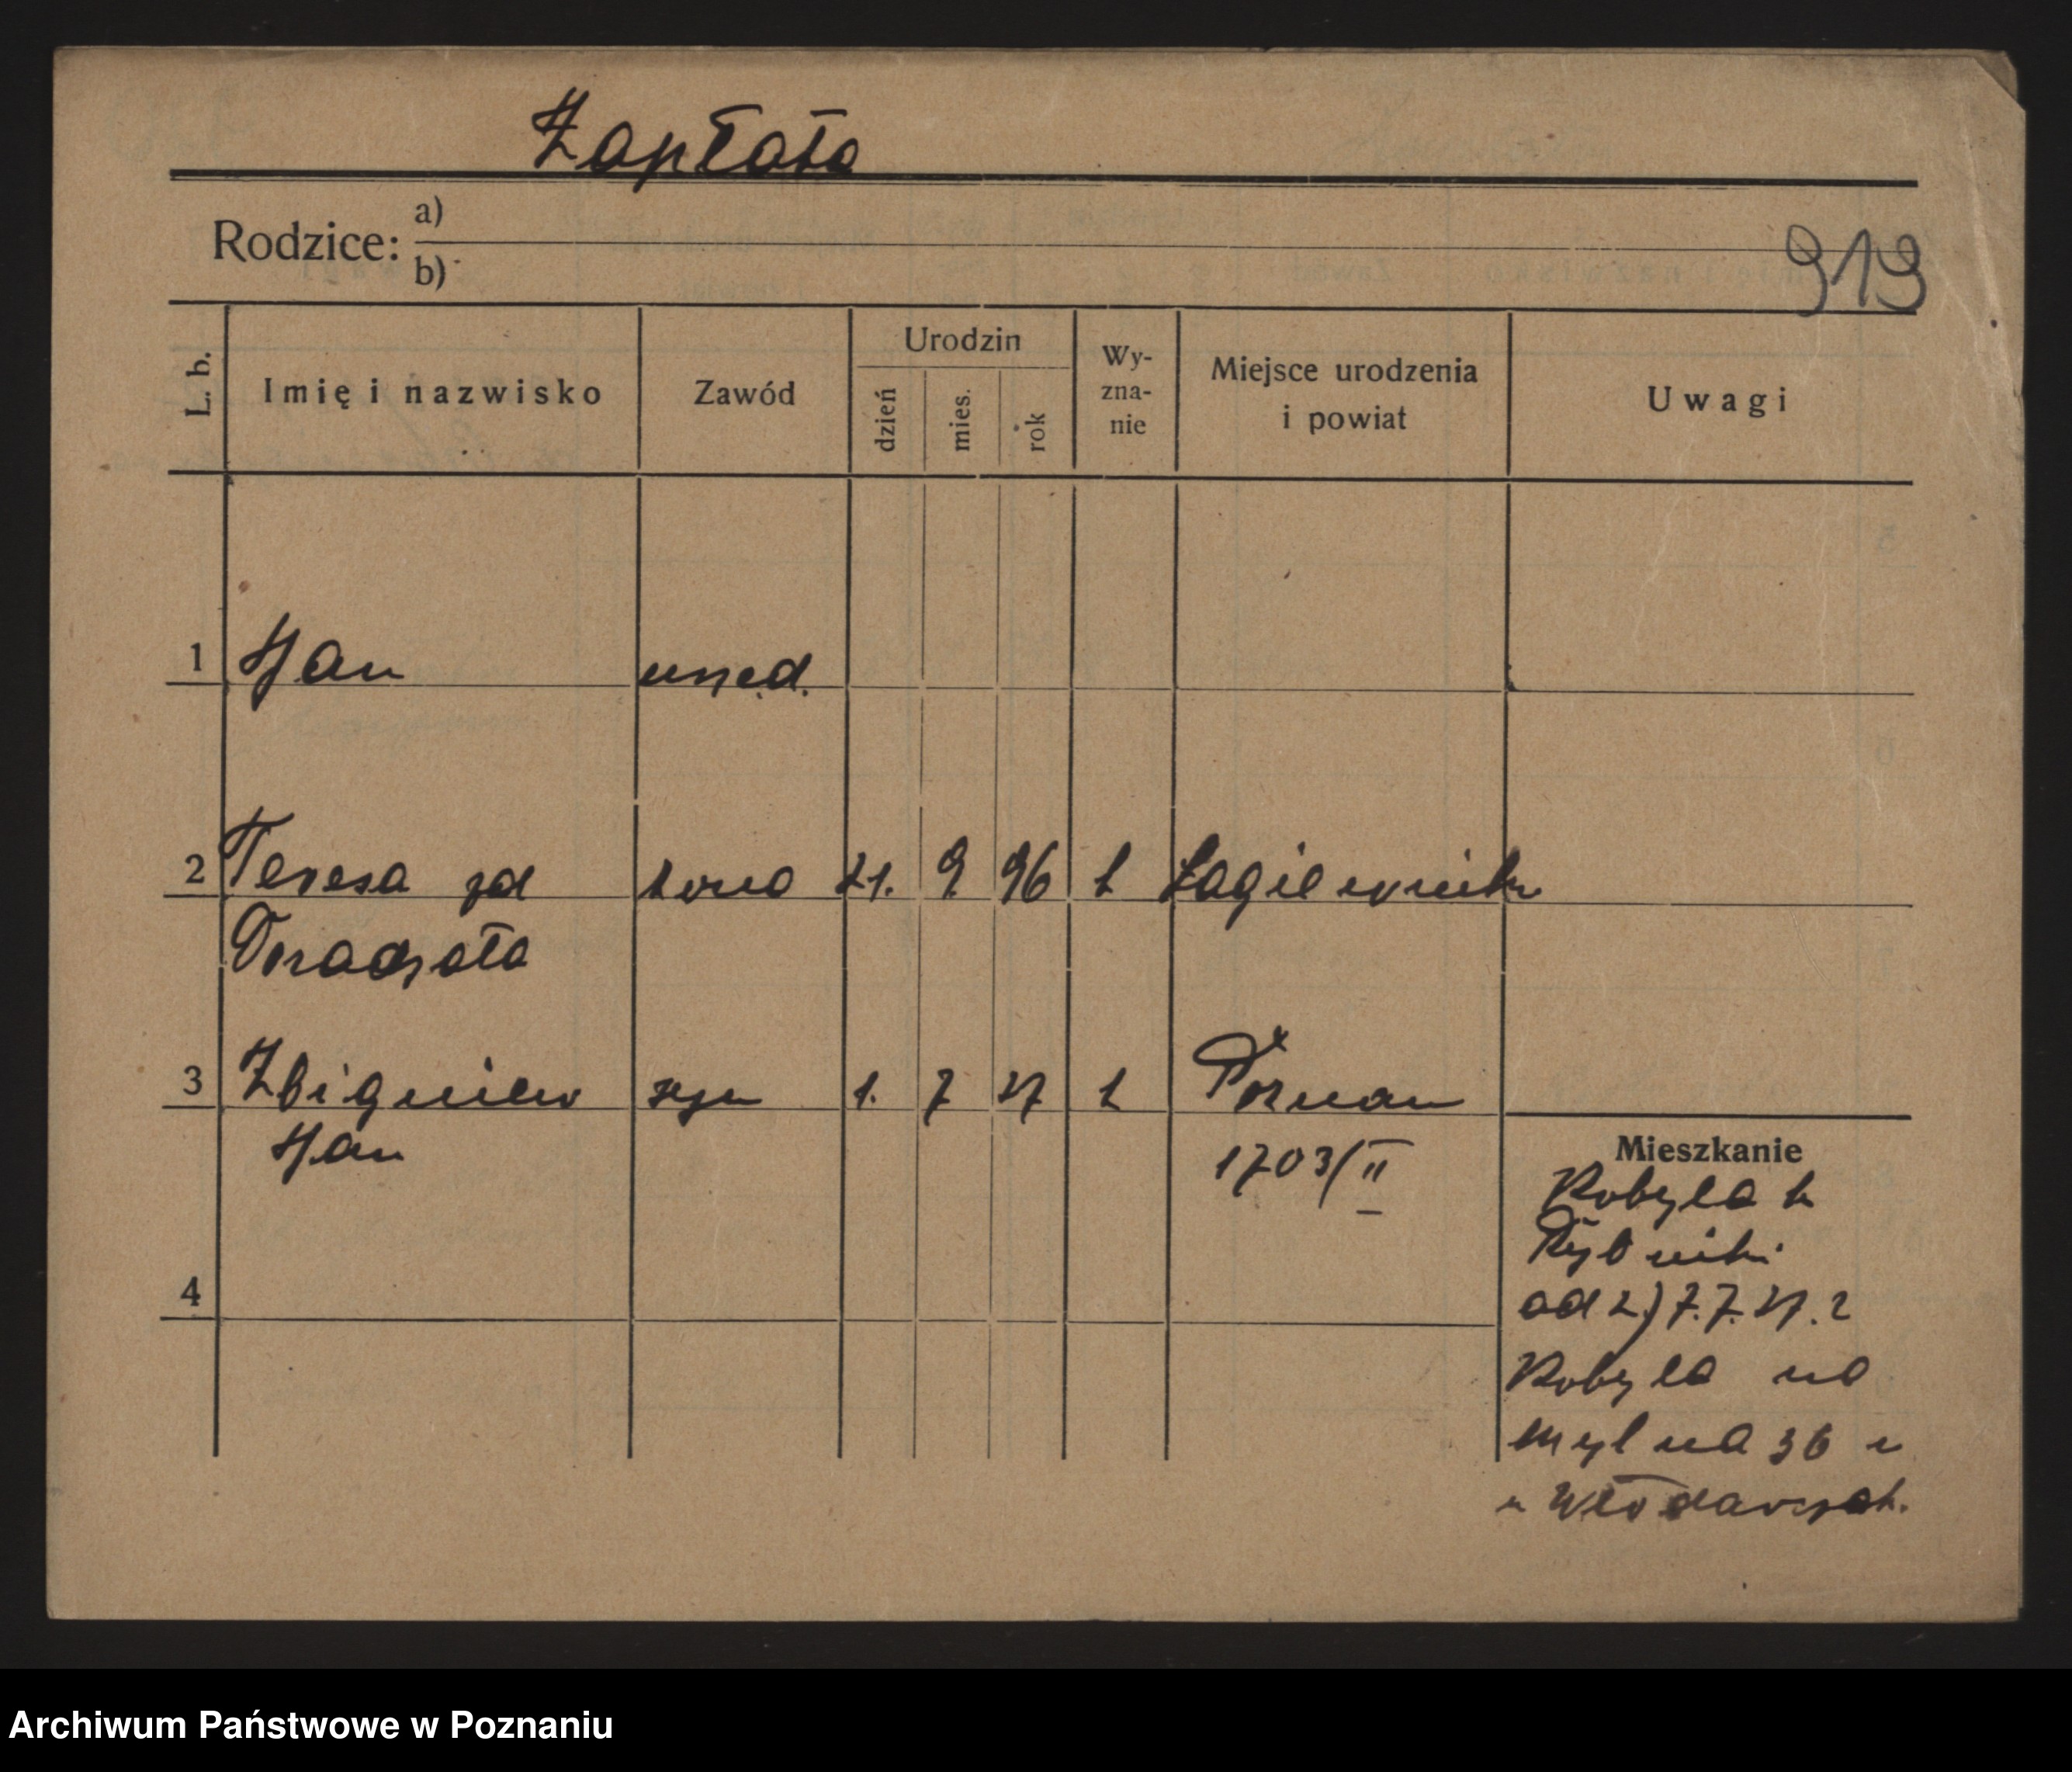 Zapłata
Rodzice: a)
b)
919
L. b. Imię i nazwisko Zawód Urodzin dzień mies. rok Wy-zna-nie Miejsce urodzenia i powiat Uwagi
1 Jan urzęd.
2 Teresa zd żona 21. 9. 96 k Łagiewniki
3 Zbigniew syn 1. 7 27 k Poznan
Jan 1703/II
Mieszkanie
Kobyla
Rybniki
od 7.7.27. z
4
Kobyla na
Mylna 36
u Włodarczak.
Archiwum Państwowe w Poznaniu